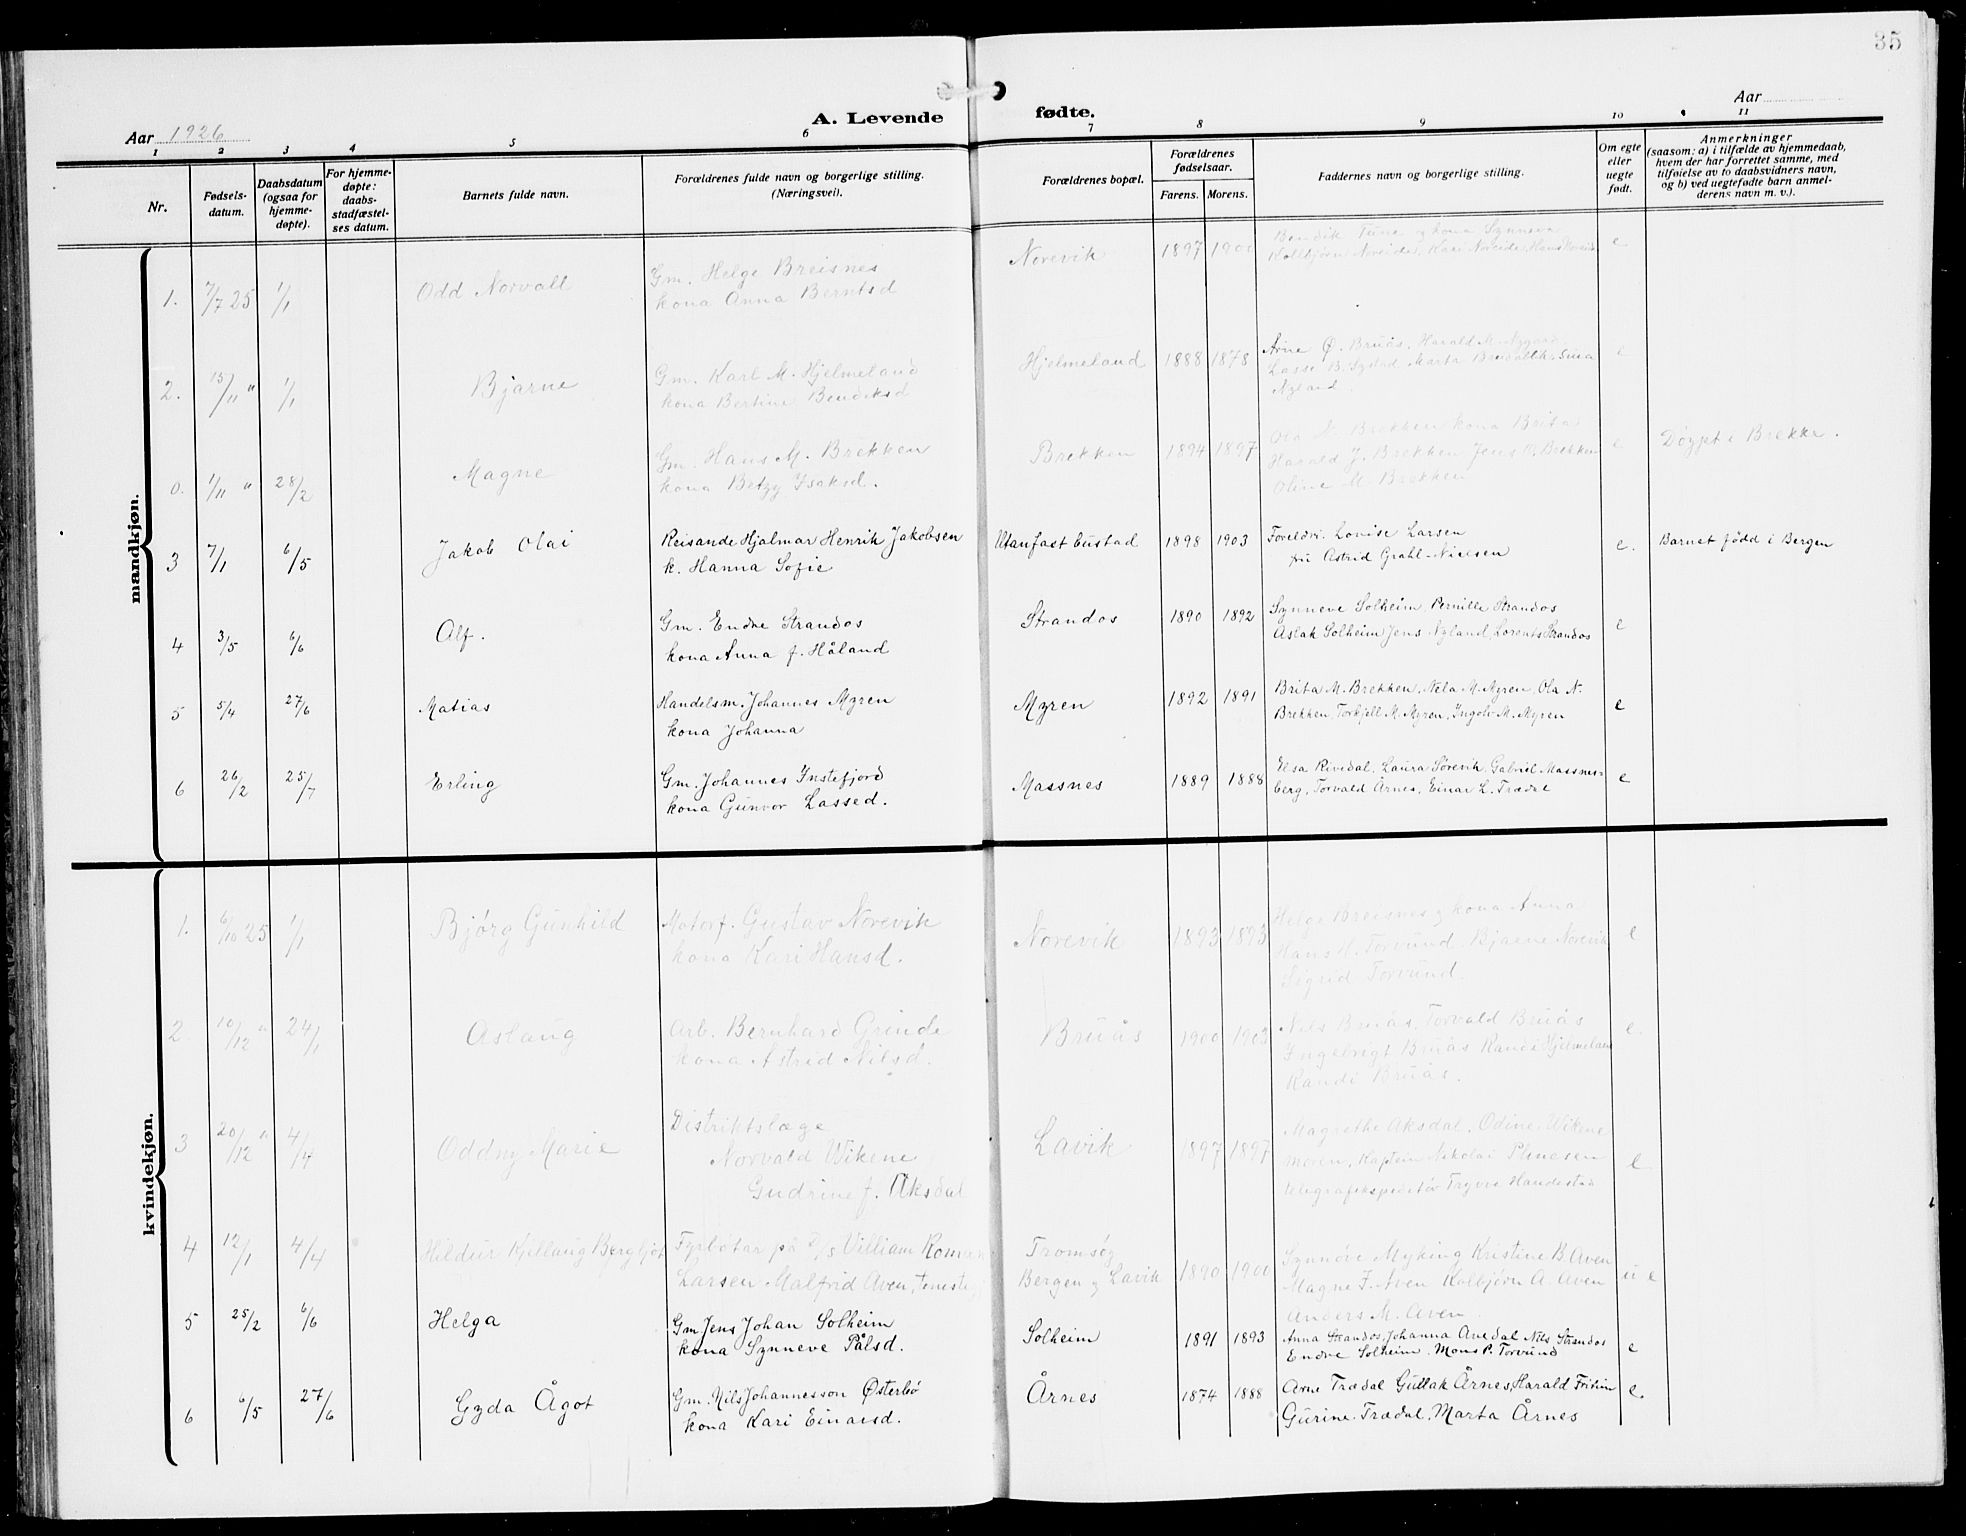 35
A. Levende fødte.
Aar 1926
Aar
1 2 3 4 5 6 7 8 9 10 11
Nr.
Fødsels-
datum.
Daabsdatum
(ogsaa for
hjemme-
døpte).
For hjemme-
døpte:
daabs-
stadfæstel-
ses datum.
Barnets fulde navn.
Forældrenes fulde navn og borgerlige stilling.
(Næringsvei).
Forældrenes bopæl.
Forældrenes
fødselsaar.
Farens. Morens.
Faddernes navn og borgerlig stilling.
Om egte
eller
uegte
født.
Anmerkninger
(saasom: a) i tilfælde av hjemmedaab,
hvem der har forrettet samme, med
tilføielse av to daabsvidners navn,
og b) ved uegtefødte barn anmel-
derens navn m. v.).
mandkjøn.
1. 7/7 25 1/1 Odd Norvall
Gm. Helge Breisnes
kona Anna Berntsd
Norevik 1897 1900
Bendik Tune og kona Synneva
Kolbjørn Noreide, Kari Noreide, Hans
e
2. 15/11 " 1/1 Bjarne
Gm. Karl M. Hjelmeland
kona Bertine Bendiksd
Hjelmeland 1888 1878
Arne Ø. Bruås, Harald M. Nygard,
Lasse B. Systad Marta Sina
Nyland.
e
0. 1/11 " 28/2 Magne
Gm. Hans M. Brekken
kona Betzy Isaksd.
Brekken 1894 1897
Ola N. Brekken kona Brita
Harald J. Brekken Jens N. Brekken
Oline M. Brekken
e Døypt i Brekke.
3 7/1 6/5 Jakob Olai
Reisande Hjalmar Henrik Jakobsen
k. Hanna Sofie
Utanfast bustad 1898 1903
Foreldri. Lovise Larsen
fru Astrid Grahl-Nielsen
e. Barnet fødd i Bergen
4 3/5 6/6 Alf.
Gm. Endre Strandos
kona Anna f. Håland
Strandos 1890 1892
Synneve Solheim, Pernille Strandos
Aslak Solheim, Jens Nyland, Lorents Strandos
e
5 5/4 27/6 Matias
Handelsm. Johannes Myren
kona Johanna
Myren 1892 1891
Brita M. Brekken, Nela M. Myren, Ola N.
Brekken, Torkjell M. Myren, Ingolv M. Myren
e
6 26/2 25/7 Erling
Gm. Johannes Instefjord
kona Gunvor Lassed.
Massnes 1889 1888
Elsa Rivedal, Laura Sørevik, Gabriel Massnes-
berg, Torvald Årnes, Einar L. Trædal
e
kvindekjøn.
1. 6/10 25 1/1 Bjørg Gunhild
Motorf. Gustav Norevik
kona Kari Hansd.
Norevik 1893 1893
Helge Breisnes og kona Anna
Hans H. Torvund, Bjarne Norevik
Sigrid Torvund.
e
2. 10/12 " 24/1 Aslaug
Arb. Bernhard Grinde
kona Astrid Nilsd.
Bruås 1900 1903
Nils Bruås, Torvald Bruås
Ingebrigt Bruås Randi Hjelmeland
Randi Bruås.
e.
3 20/12 " 4/4 Oddny Marie
Distriktslæge
Norvald Wikene
Gudrine f. Aksdal
Lavik 1897 1897
Magrethe Aksdal, Odine Wikene
moren, Kaptein Nikolai
telegrafekspeditør Trygve Handestad
e
4 12/1 4/4 Hildur Kjellaug Bergljot
Fyrbøtar på D/S Villiam Roman
Larsen Malfrid Aven, tenste,
Tromsø,
Bergen og Lavik 1890 1900
Synnøve Myking Kristine B. Aven
Magne F. Aven Kolbjørn A. Aven
Anders M. Aven.
u e
5 25/2 6/6 Helga
Gm Jens Johan Solheim
kona Synneve Pålsd.
Solheim 1891 1893
Anna Strandos, Johanna Avedal Nils Strandos
Endre Solheim, Mons P. Torvund
e
6 6/5 27/6 Gyda Ågot
Gm. Nils Johannesson Østerbø
kona Kari Einarsd.
Årnes 1874 1888
Arne Trædal Gullak Årnes, Harald
Gurine Trædal, Marta Årnes
e.